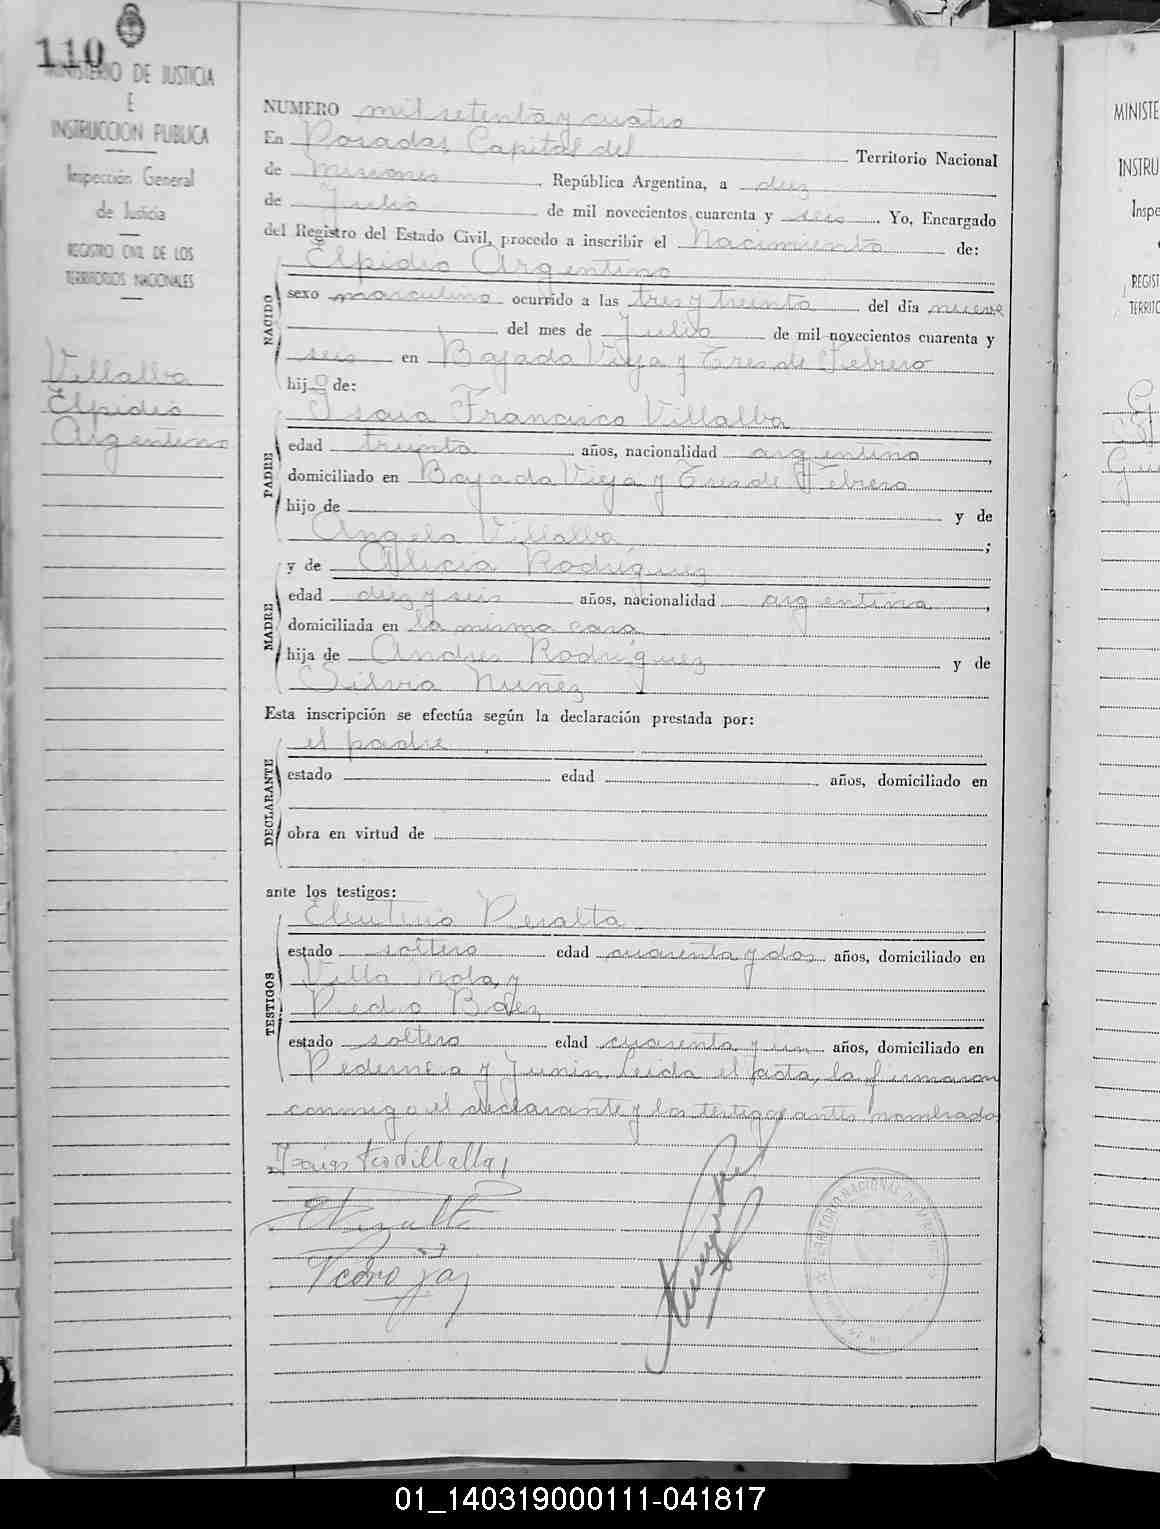 110
MINISTERIO DE JUSTICIA
E
INSTRUCCION PUBLICA
Inspección General
de Justicia
REGISTRO CIVIL DE LOS
TERRITORIOS NACIONALES
Villalba
Elpidio
Argentino
NUMERO mil setenta y cuatro
En Posadas, Capital del Territorio Nacional
de Misiones, República Argentina, a diez
de Julio de mil novecientos cuarenta y seis. Yo, Encargado
del Registro del Estado Civil, procedo a inscribir el Nacimiento de:
Elpidio Argentino
NACIDO
sexo masculino ocurrido a las tres y treinta del día nueve
del mes de Julio de mil novecientos cuarenta y
seis en Bajada Vieja y Tres de Febrero
hijo de:
Isaia Francisco Villalba
PADRE
edad treinta años, nacionalidad argentino,
domiciliado en Bajada Vieja y Tres de Febrero
hijo de y de
Angela Villalba;
y de Alicia Rodríguez
MADRE
edad diez y seis años, nacionalidad argentina,
domiciliada en la misma casa
hija de Andres Rodríguez y de
Silvia Nuñez
Esta inscripción se efectúa según la declaración prestada por:
el padre
DECLARANTE
estado edad años, domiciliado en
obra en virtud de
ante los testigos:
Eleuterio Peralta
TESTIGOS
estado soltero edad cuarenta y dos años, domiciliado en
Villa Mola, y
Pedro Báez
estado soltero edad cuarenta y un años, domiciliado en
Pedernera y Junin. Leida el acta, la firmaron
conmigo el declarante y los testigos antes nombrados
Pedro
MINISTE
INSTRU
Inspe
REGIST
TERRITO
01_140319000111-041817